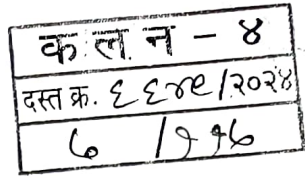 क. ल. न - ४
दस्त क्र. ६६४९/२०२४
७ /११७